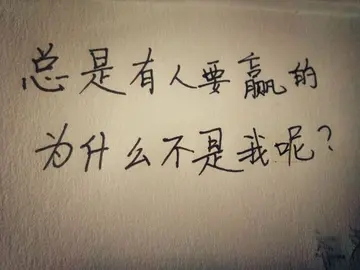 总是有人要赢的
为什么不是我呢?